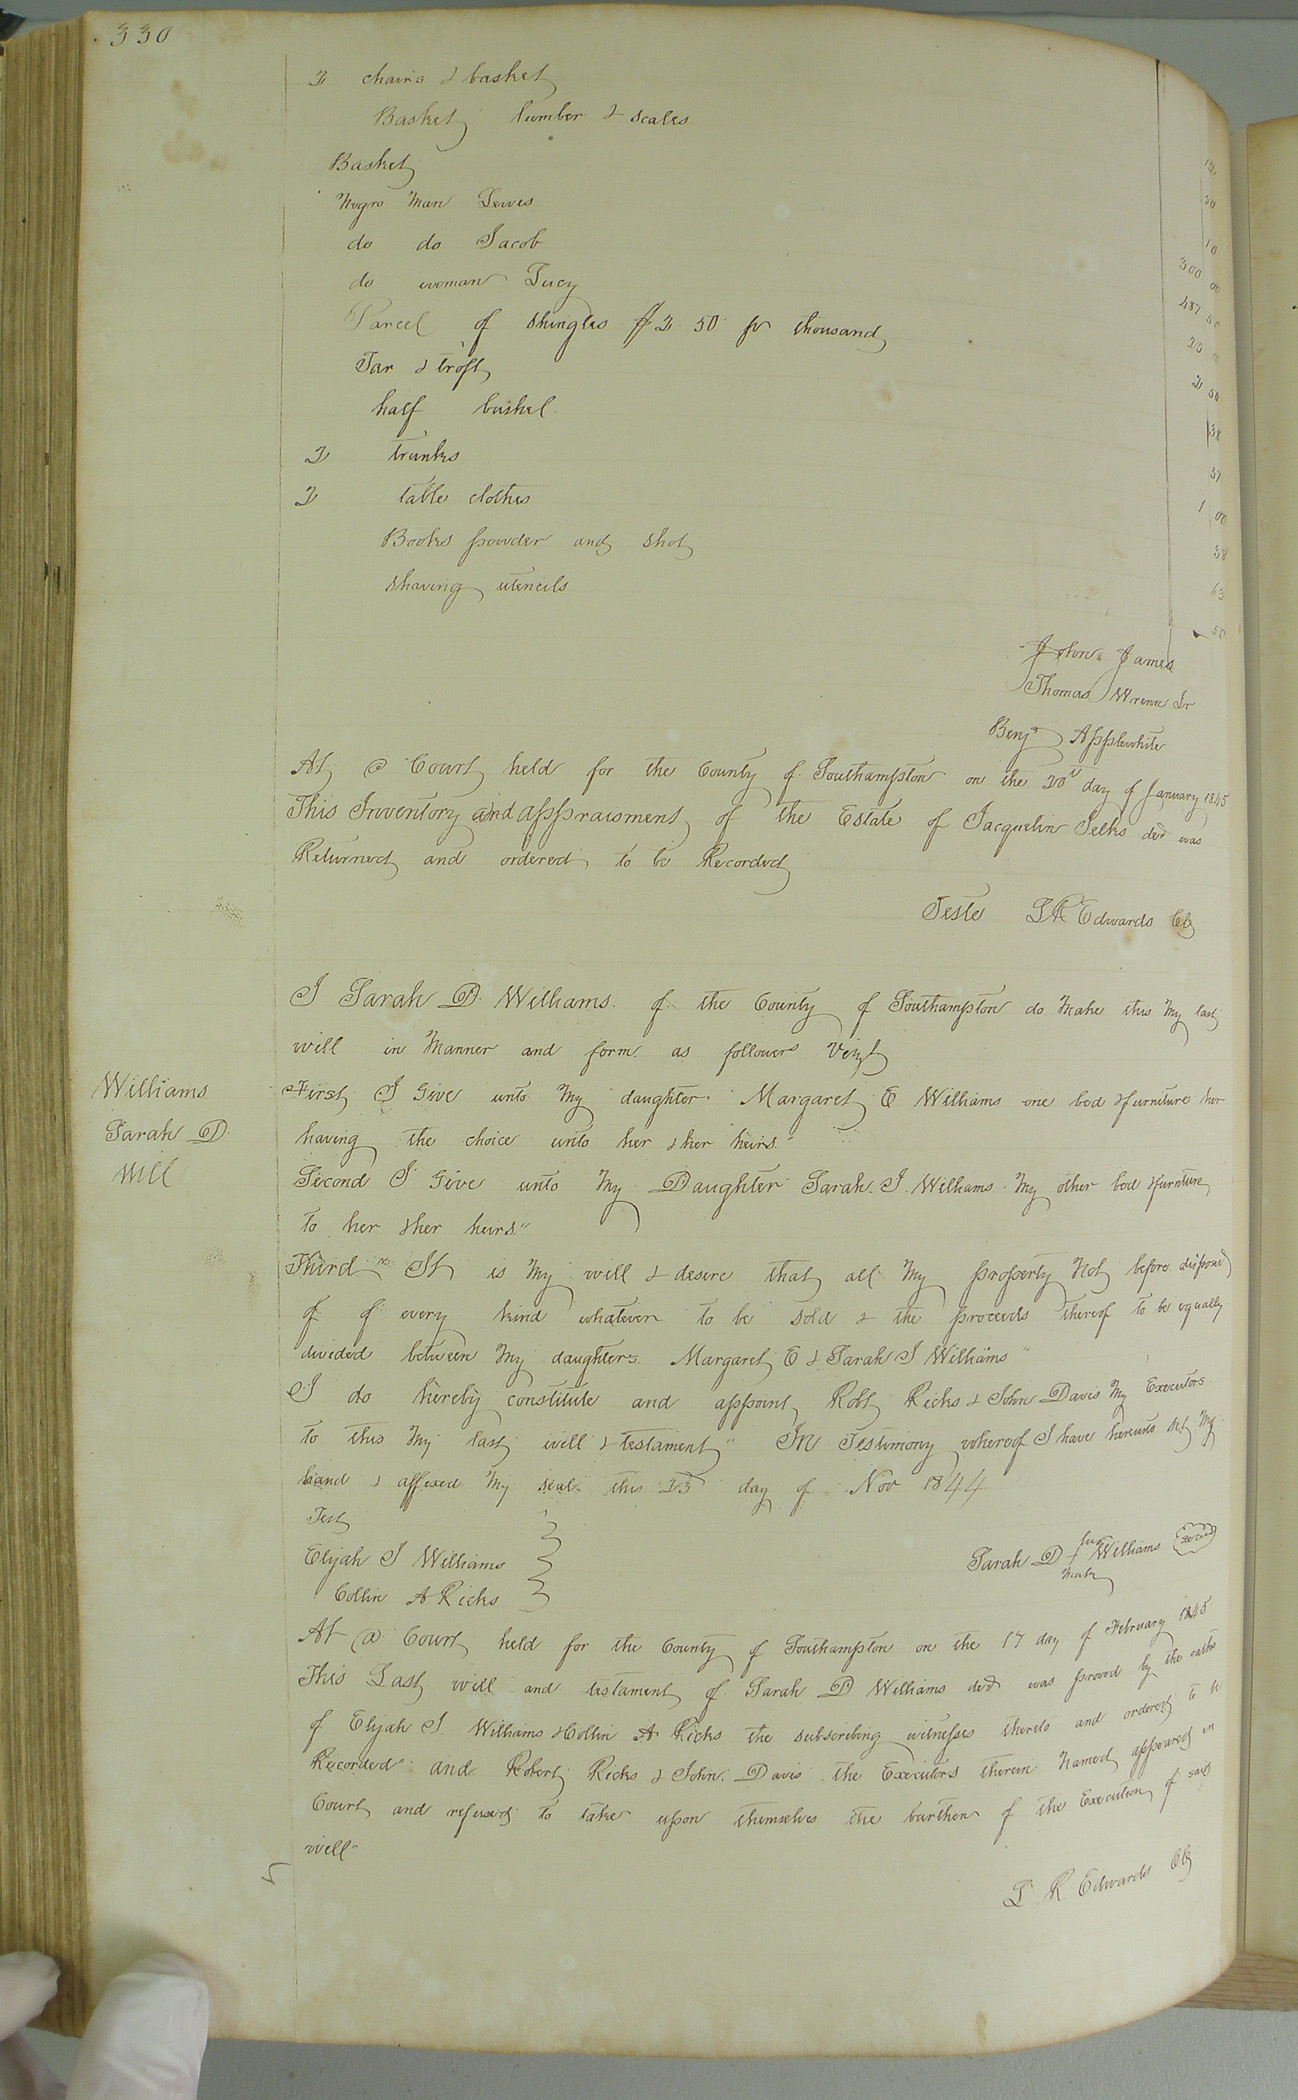 330
2 chairs & basket
Basket lumber & scales 12
Basket 50
Negro Man Lewes 10
do do Jacob 300 00
do woman Lucy 487 50
Parcel of shingles $2.50 pr thousand 20
Tar & troft 2 50
half bushel 38
2 trunks 37
2 table clothes 1 00
Books powder and shot 38
shaving utencils 63
50
John James
Thomas Wrenn Sr
Benja Applewhite
At a Court held for the County of Southampton on the 20th day of January 1845
This Inventory and appraisment of the Estate of Jacquelin Selks decd was
Returned and ordered to be Recorded
Teste L R Edwards Clk
I Sarah D. Williams of the County of Southampton do Make this My last
will in Manner and form as followers Vizt
Williams
Sarah D.
Will
First I Give unto My daughter Margaret E Williams one bed & furniture her
having the choice unto her & her heirs."
Second I Give unto My Daughter Sarah. J. Williams My other bed & furniture
to her & her heirs."
Third " It is My will & desire that all My property Not before disposed
of of every kind whatever to be sold & the proceeds thereof to be equally
divided between My daughters. Margaret E & Sarah J. Williams "
I do hereby constitute and appoint Robt Ricks & John Davis My Executors
to this My last will & testament " In Testimony whereof I have hereunto set My
hand & affixed My seal this 23 day of Nov 1844
Test
Elijah J Williams
Collin A Ricks
Sarah D + Williams seal
her
Mark
At a Court held for the County of Southampton on the 17 day of February 1845
This Last will and testament of Sarah D Williams decd was proved by the oaths
of Elijah J. Williams & Collin A Ricks the subscribing witnesses thereto and ordered to be
Recorded" and Robert Ricks & John. Davis the Executors therein Named appeared in
Court and refused to take upon themselves the burthen of the Execution of said
will"
L. R. Edwards Clk